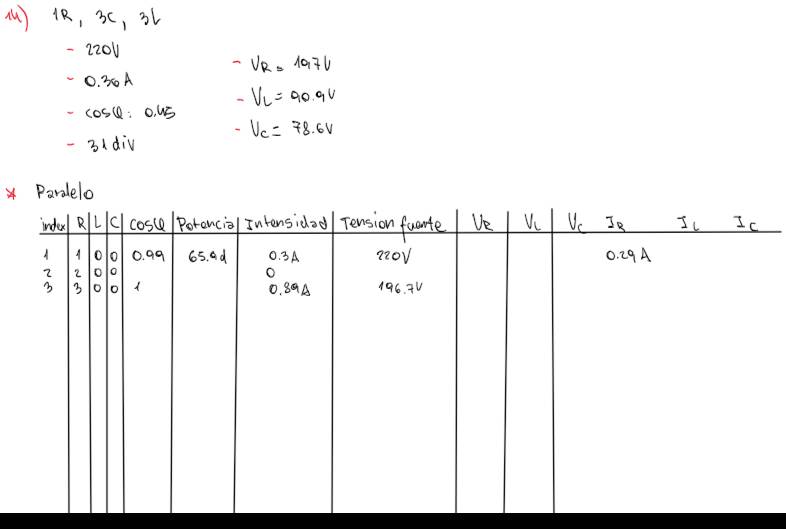 14) 1R, 3C, 3L
- 220V
- 0.30A
- cosφ: 0.45
- 31 div
- VR = 197V
- VL = 90.9V
- VC = 78.6V
* Paralelo
index R L C cosφ Potencia Intensidad Tension fuente VR VL VC IR IL IC
1 1 0 0 0.99 65.9d 0.3A 220V 0.29A
2 2 0 0 0
3 3 0 0 1 0.89A 196.7V